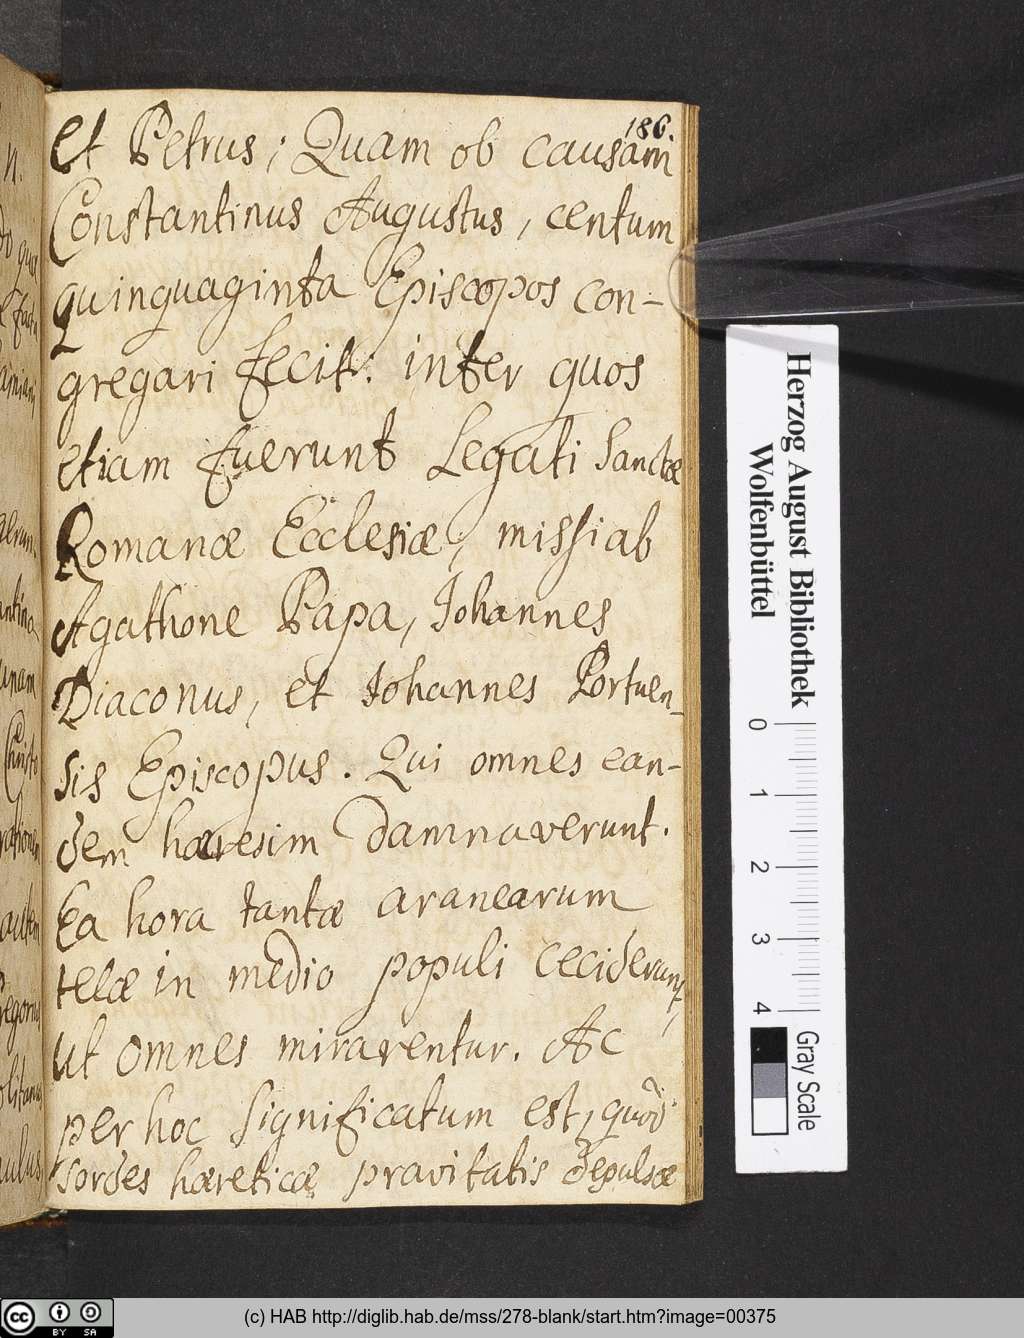 186.
et Petrus; Quam ob causam
Constantinus Augustus, centum
quinquaginta Episcopos con-
gregari fecit: inter quos
etiam fuerunt Legati Sanctæ
Romanæ Ecclesiæ, missi ab
Agathone Papa, Johannes
Diaconus, et Johannes Portuen-
sis Episcopus. Qui omnes ean-
dem hæresim damnaverunt.
Ea hora tantæ aranearum
telæ in medio populi ceciderunt,
ut omnes mirarentur. Ac
per hoc significatum est, quòd
sordes hæreticæ pravitatis depulsæ
Herzog August Bibliothek
Wolfenbüttel
0 1 2 3 4
Gray Scale
cc BY SA
(c) HAB http://diglib.hab.de/mss/278-blank/start.htm?image=00375